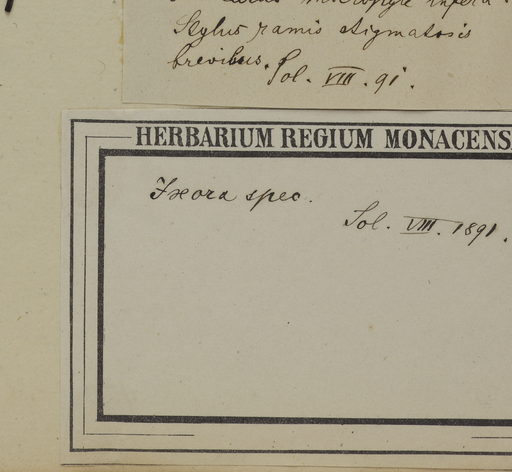 micropyle infera
Stylus ramis stigmatosis
brevibus. Sol. VIII. 91.
HERBARIUM REGIUM MONACENS
Ixora spec.
Sol. VIII. 1891.